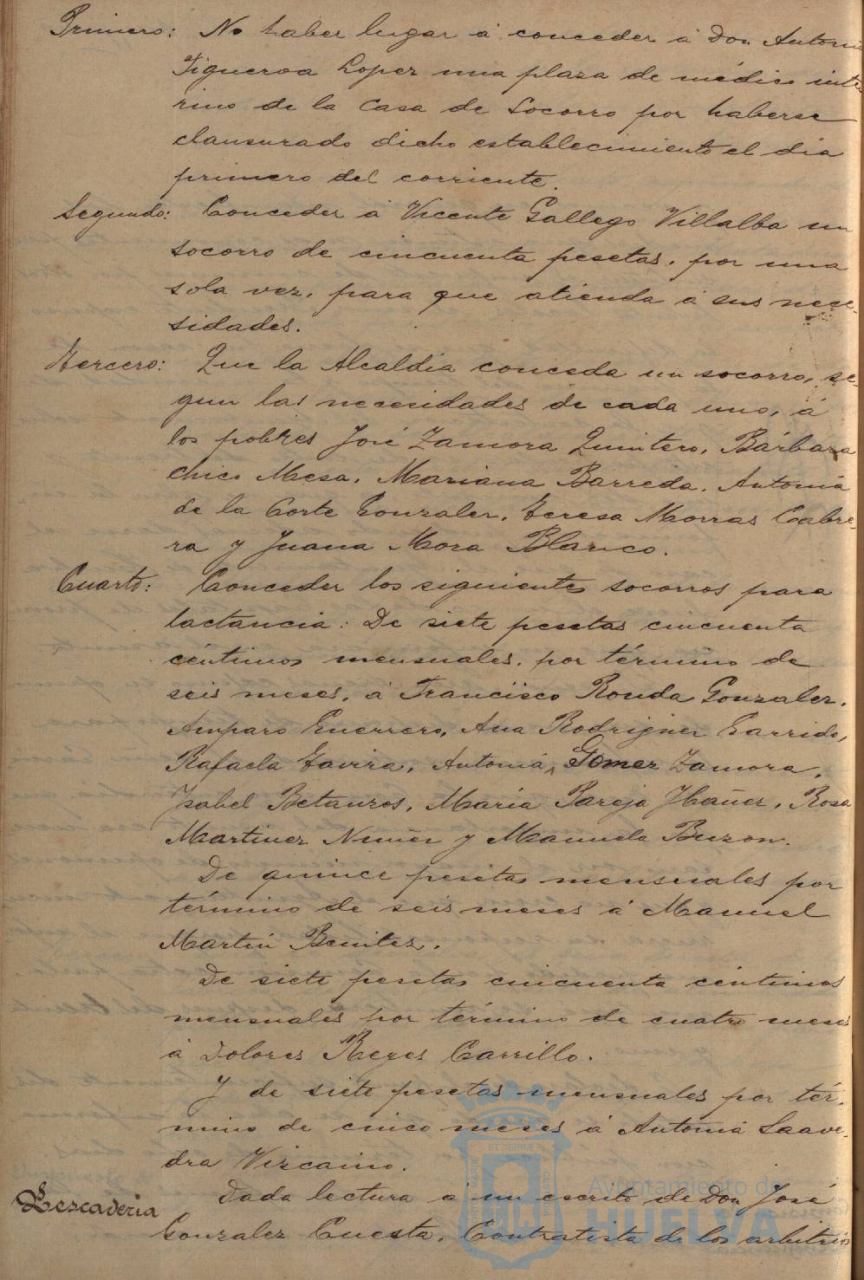 Primero: No haber lugar á conceder á Don Antonio
Figueroa Lopez una plaza de médico inte-
rino de la Casa de Socorro por haberse
clausurado dicho establecimiento el dia
primero del corriente.
Segundo: Conceder á Vicente Gallego Villalba un
socorro de cincuenta pesetas, por una
sola vez, para que atienda á sus nece-
sidades.
Tercero: Que la Alcaldia conceda un socorro, se-
gun las necesidades de cada uno, á
los pobres José Zamora Quintero, Bárbara
Chico Mesa, Mariana Barreda, Antonia
de la Corte Gonzalez, Teresa Morras Cabre-
ra y Juana Mora Blanco.
Cuarto: Conceder los siguientes socorros para
lactancia: De siete pesetas cincuenta
céntimos mensuales, por término de
seis meses, á Francisco Ronda Gonzalez,
Amparo Guerrero, Ana Rodriguez Garrido,
Rafaela Tavira, Antonia Gomez Zamora,
Isabel Betanzos, Maria Pareja Ibañez, Rosa
Martinez Nuñez y Manuela Buzon.
De quince pesetas mensuales por
término de seis meses á Manuel
Martin Benitez.
De siete pesetas cincuenta céntimos
mensuales por término de cuatro meses
á Dolores Reyes Carrillo.
Y de siete pesetas mensuales por tér-
mino de cinco meses á Antonia Saave-
dra Vizcaino.
Pescaderia Dada lectura á un escrito de Don José
Gonzalez Cuesta, Contratista de los arbitrios
Ayuntamiento de
HUELVA